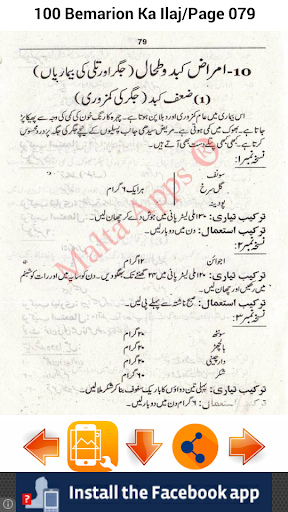 100 Bemarion Ka Ilaj/Page 079
79
10- امراض کبد و طحال (جگر اور تلی کی بیماریاں)
(1) ضعف کبد (جگر کی کمزوری)
اس بیماری میں عام کمزوری اور دبلا پن ہوتا ہے۔ چہرہ کا رنگ خون کی کمی کی وجہ سے پھیکا پڑ
جاتا ہے۔ بھوک میں کمی ہوتی ہے۔ مریض سیدھی جانب پسلیوں کے نیچے جگر کی جگہ پر درد محسوس
کرتا ہے۔ کبھی کبھی پتلے دست بھی آتے ہیں۔
نسخہ نمبر ۱:
سونف
گل سرخ ہر ایک ۶ گرام
پودینہ
ترکیب تیاری: ۱۲۰ ملی لیٹر پانی میں جوش دے کر چھان لیں۔
ترکیب استعمال: دن میں دو بار لیں۔
نسخہ نمبر ۲:
اجوائن ۱۲ گرام
ترکیب تیاری: ۱۲۰ ملی لیٹر پانی میں ۲۴ گھنٹے تک بھگو دیں۔ دن کو سایہ میں اور رات کو شبنم
میں رکھیں اور چھان لیں۔
ترکیب استعمال: صبح ناشتہ سے پہلے پی لیں۔
نسخہ نمبر ۳:
سونٹھ ۲۰ گرام
بالچھڑ ۲۰ گرام
دارچینی ۲۰ گرام
شکر ۶۰ گرام
ترکیب تیاری: پہلی تین دواؤں کا باریک سفوف بنا کر شکر ملا لیں۔
ترکیب استعمال: ۶ گرام دن میں دو بار لیں۔
Malta Apps ®
Install the Facebook app